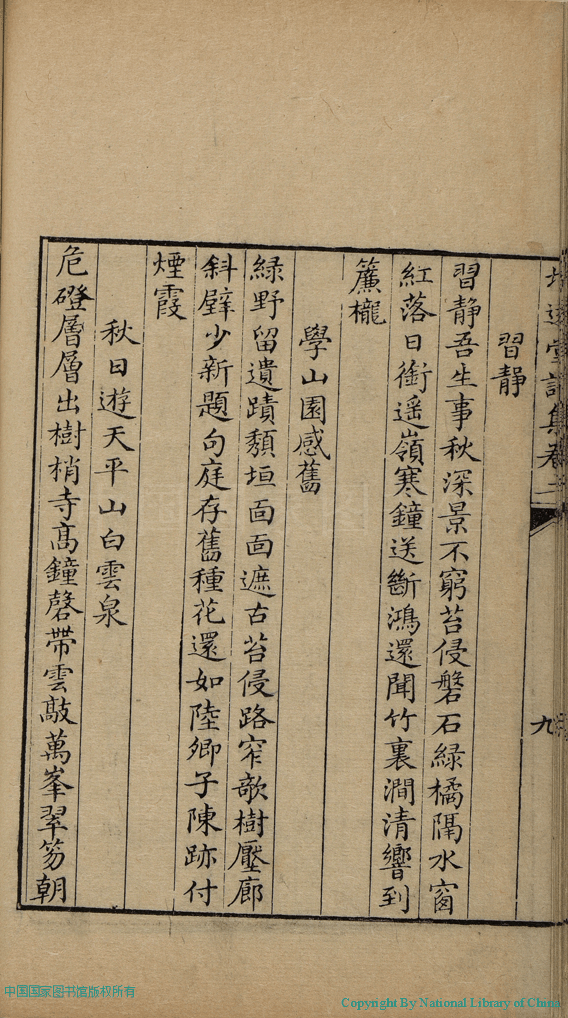 遠堂詩集卷
九
習靜
習靜吾生事秋深景不窮苔侵磐石綠橘隔水窗
紅落日銜遥嶺寒鐘送斷鴻還聞竹裏澗清響到
簾櫳
學山園感舊
綠野留遺蹟頽垣面面遮古苔侵路窄欹樹壓廊
斜壁少新題句庭存舊種花還如陸卿子陳跡付
煙霞
秋日遊天平山白雲泉
危磴層層出樹梢寺髙鐘磬帶雲敲萬峯翠笏朝
中国国家图书馆版权所有
Copyright By National Library of China